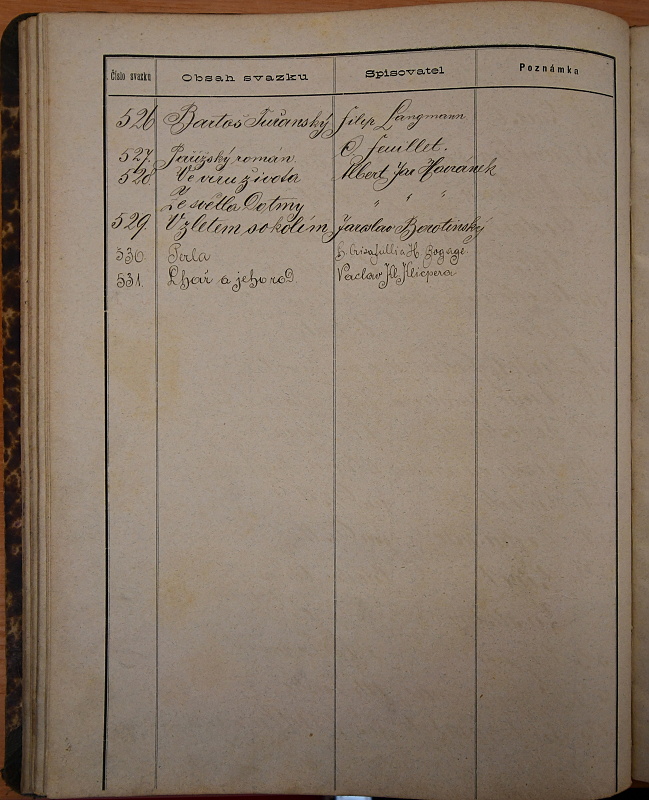 Číslo svazku Obsah svazku Spisovatel Poznámka
526 Bartoš Turanský Filip Langmann
527. Pařížský román. O Feuillet.
528. Ve víru života Albert Jar Havránek
Ze světla Do tmy " " "
529. Vzletem sokolím Jaroslav Borotinský
530. Perla H. Crisafulli a H.
531. Lhář a jeho roD. Vaclav Kl. Klicpera